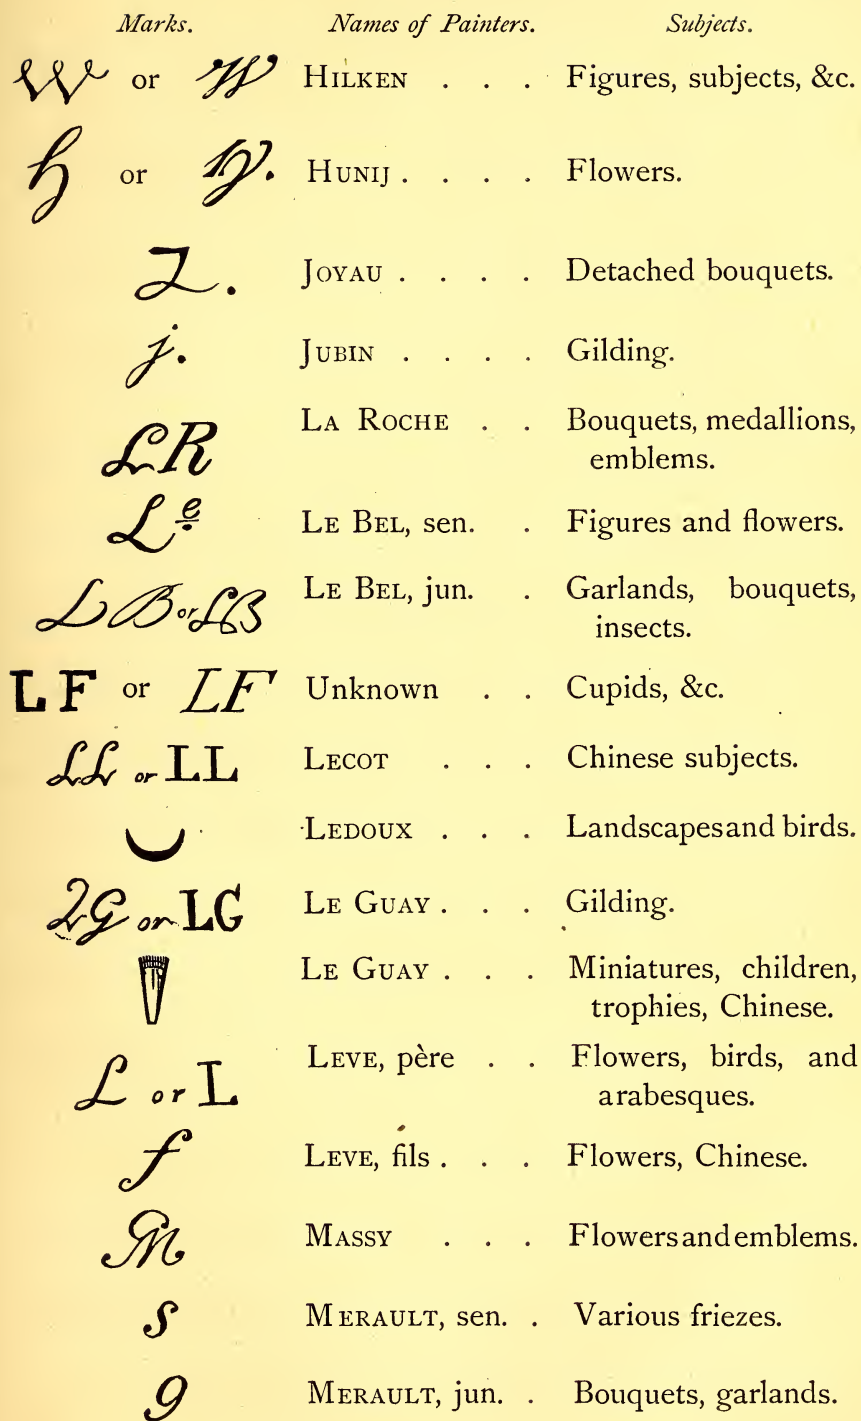 Marks. Names of Painters. Subjects.
W or W HILKEN . . . Figures, subjects, &c.
h or hy. HUNIJ . . . . Flowers.
Z. JOYAU . . . . Detached bouquets.
j. JUBIN . . . . Gilding.
LR LA ROCHE . . Bouquets, medallions,
emblems.
Le LE BEL, sen. . Figures and flowers.
LB or LB LE BEL, jun. . Garlands, bouquets,
insects.
LF or LF Unknown . . Cupids, &c.
LL or LL LECOT . . . Chinese subjects.
LEDOUX . . . Landscapes and birds.
LG or LG LE GUAY . . . Gilding.
LE GUAY . . . Miniatures, children,
trophies, Chinese.
L or L LEVE, père . . Flowers, birds, and
arabesques.
f LEVE, fils . . . Flowers, Chinese.
M MASSY . . . Flowers and emblems.
S MERAULT, sen. . Various friezes.
9 MERAULT, jun. . Bouquets, garlands.